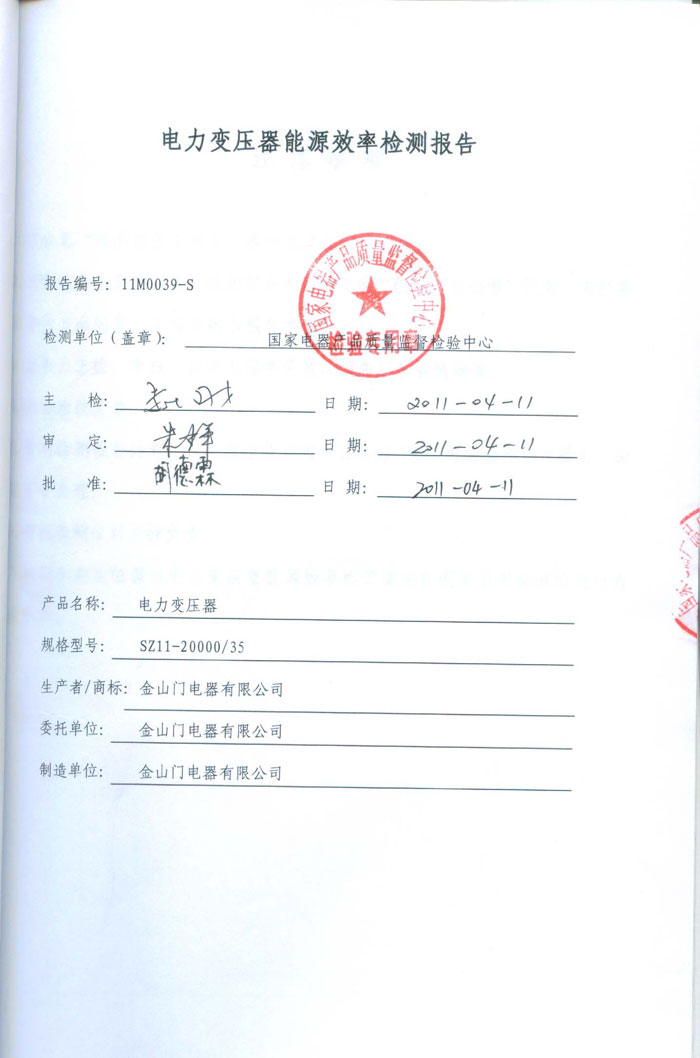 电力变压器能源效率检测报告
国家电器产品质量监督检验中心
检验专用章
报告编号: 11M0039-S
检测单位(盖章): 国家电器产品质量监督检验中心
主 检: 日 期: 2011-04-11
审 定: 日 期: 2011-04-11
批 准: 胡德霖 日 期: 2011-04-11
产品名称: 电力变压器
规格型号: SZ11-20000/35
生产者/商标: 金山门电器有限公司
委托单位: 金山门电器有限公司
制造单位: 金山门电器有限公司